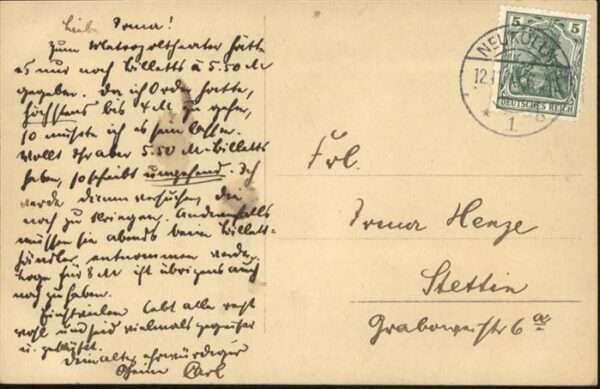 Liebe Irma!
Zum Metropoltheater hätte
es nur noch Billetts à 5.50 M
gegeben. Da ich Order hatte,
höchstens bis 4 M zu gehen,
so mußte ich es sein lassen.
Wollt Ihr aber 5.50 M-Billetts
haben, so schreibt umgehend. Ich
werde dann versuchen, die
noch zu kriegen. Andernfalls
müssen sie abends beim Billett-
händler entnommen werden.
Loge für 8 M ist übrigens auch
noch zu haben.
Einstweilen lebt alle recht
wohl und seid vielmals gegrüßt
u. geküßt.
Dein alter ehrwürdiger
Carl
5 5
DEUTSCHES REICH
NEUKÖLLN
12.
* 1
Frl.
Irma Henze
Stettin
Grabowerstr 6 a